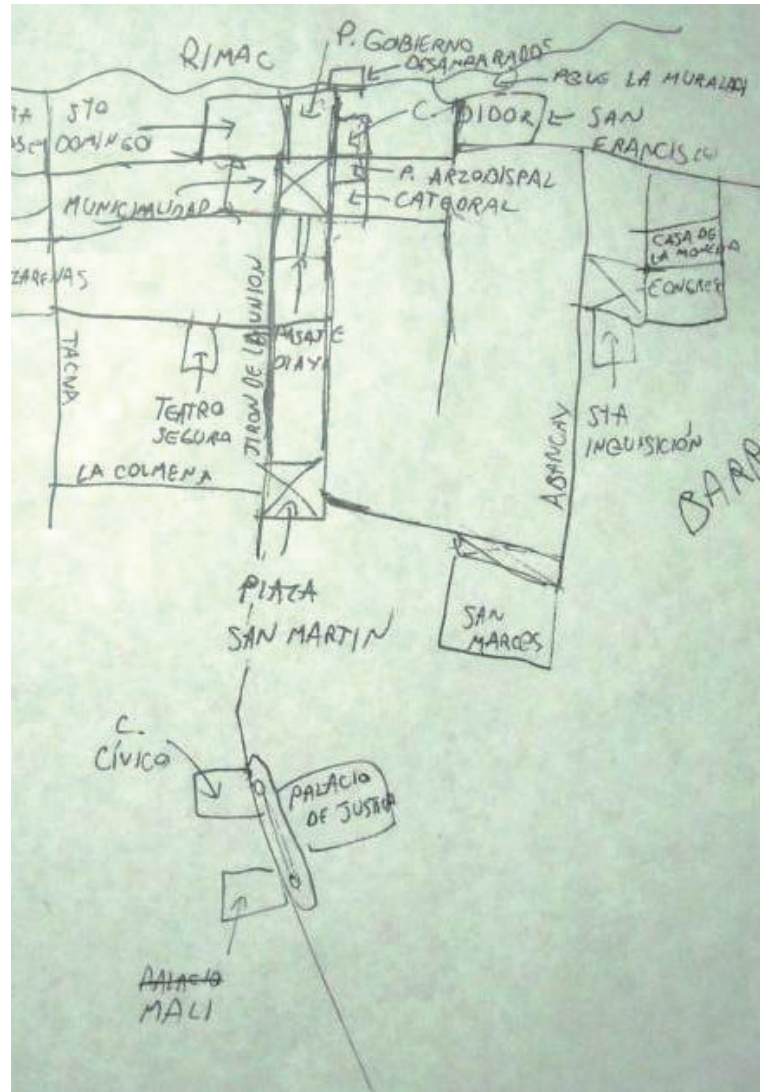 RIMAC
P. GOBIERNO
DESAMPARADOS
PQUE LA MURALLA
STO
DOMINGO
C. OIDOR
SAN
FRANCISCO
P. ARZOBISPAL
MUNICIPALIDAD
CATEDRAL
CASA DE
LA MONEDA
ZARENAS
CONGRESO
TACNA
JIRON DE LA UNION
PASAJE
OLAYA
TEATRO
SEGURA
ABANCAY
STA
INQUISICIÓN
LA COLMENA
BARR
PLAZA
SAN MARTIN
SAN
MARCOS
C.
CÍVICO
PALACIO
DE JUSTICIA
PALACIO
MALI